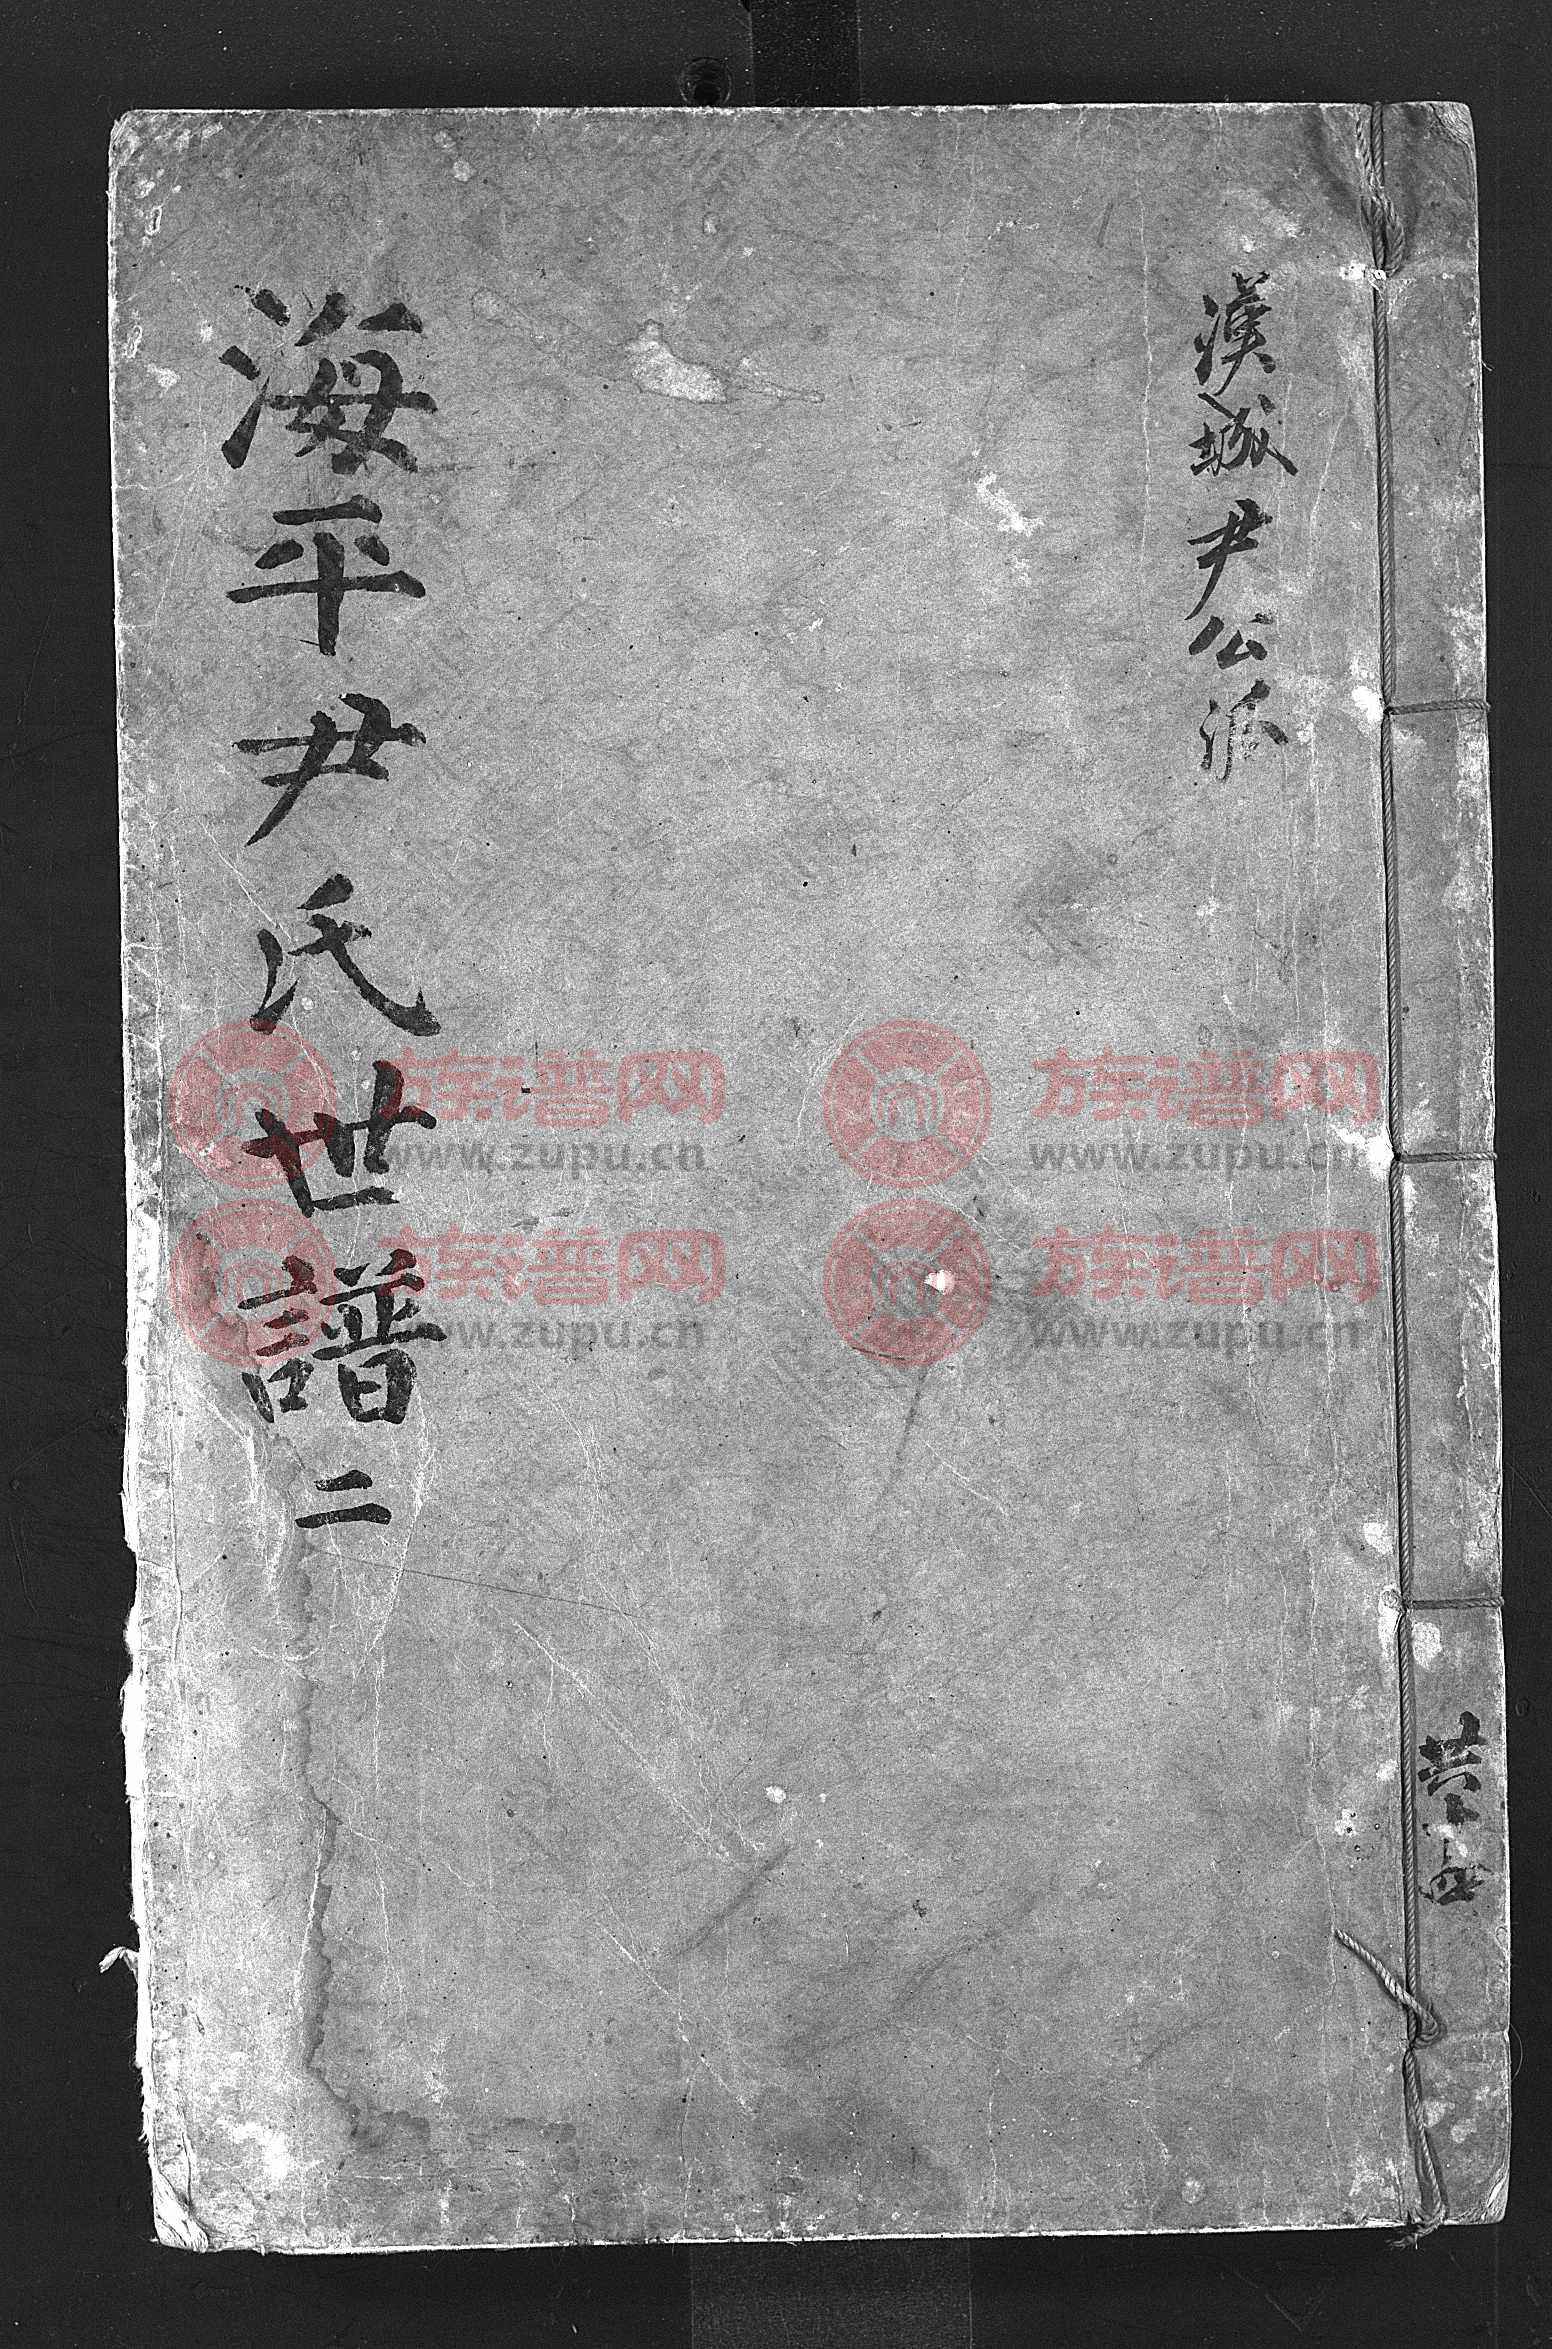 漢城尹公派
海平尹氏世譜二
共十五
族谱网
www.zupu.cn
族谱网
www.zupu.cn
族谱网
www.zupu.cn
族谱网
www.zupu.cn